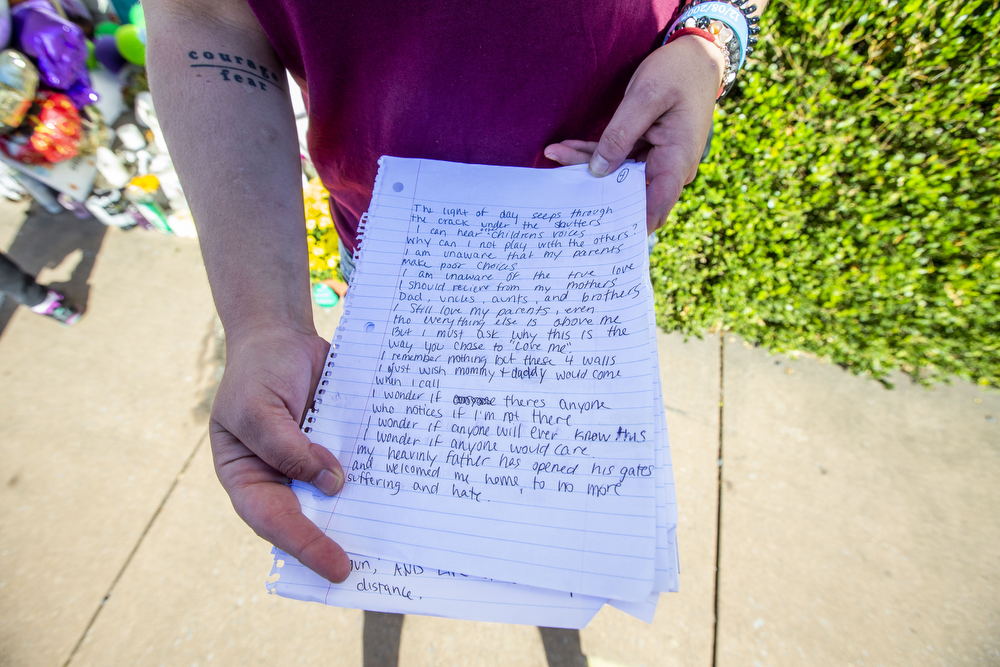 courage
fear
12/08/20
The light of day seeps through
the crack under the shutters
I can hear childrens voices
Why can I not play with the others?
I am unaware that my parents
make poor choices
I am unaware of the true love
I should recieve from my mothers
Dad, uncles, aunts, and brothers
I still love my parents, even
tho everything else is above me
But I must ask why this is the
way you chose to "Love me".
I remember nothing but these 4 walls
I just wish mommy & daddy would come
when I call
I wonder if theres anyone
who notices if I'm not there
I wonder if anyone will ever know this
I wonder if anyone would care.
my heavinly father has opened his gates
and welcomed me home, to no more
suffering and hate.
AND
distance.